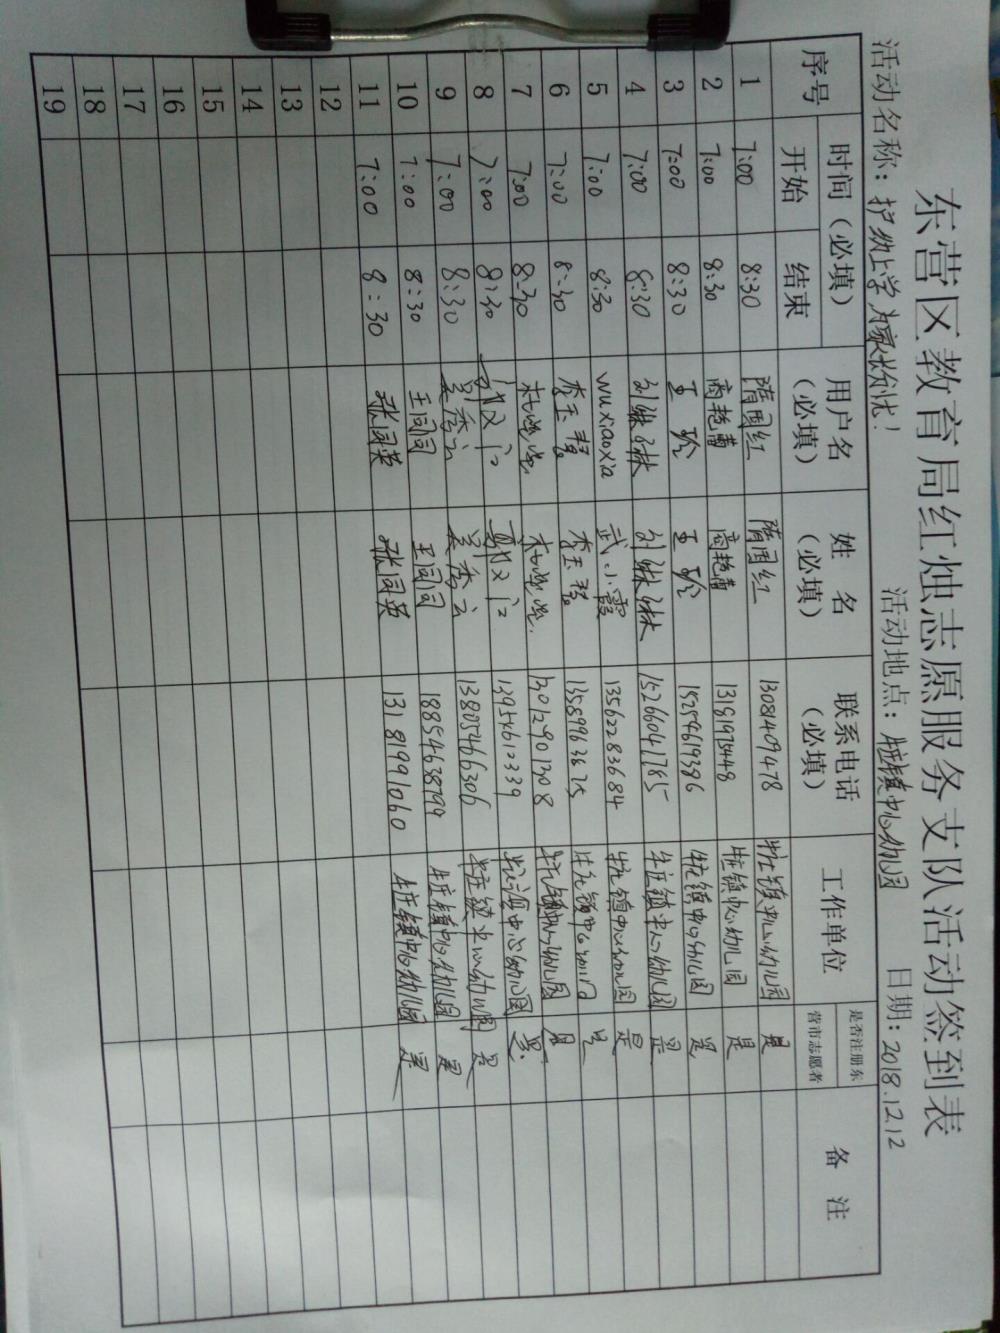 东营区教育局红烛志愿服务支队活动签到表
活动名称：护幼上学 为家长分忧！ 活动地点：牛庄镇中心幼儿园 日期：2018.12.12
序号 时间（必填） 用户名（必填） 姓 名（必填） 联系电话（必填） 工作单位 是否注册东营市志愿者 备 注
开始 结束
1 7:00 8:30 隋国红 隋国红 13081409478 牛庄镇中心幼儿园 是
2 7:00 8:30 商艳蕾 商艳蕾 13181975448 牛庄镇中心幼儿园 是
3 7:00 8:30 王玲 王玲 15254619386 牛庄镇中心幼儿园 是
4 7:00 8:30 刘妹妹 刘妹妹 15266041785 牛庄镇中心幼儿园 是
5 7:00 8:30 wuxiaoxia 武小霞 13562283684 牛庄镇中心幼儿园 是
6 7:00 8:30 13589963625 牛庄镇中心幼儿园 是
7 7:00 8:30 13012901308 牛庄镇中心幼儿园 是
8 7:00 8:30 13954612339 牛庄镇中心幼儿园 是
9 7:00 8:30 吴秀云 吴秀云 13805466306 牛庄镇中心幼儿园 是
10 7:00 8:30 王同同 王同同 18854638799 牛庄镇中心幼儿园 是
11 7:00 8:30 张同英 张同英 13181991060 牛庄镇中心幼儿园 是
12
13
14
15
16
17
18
19